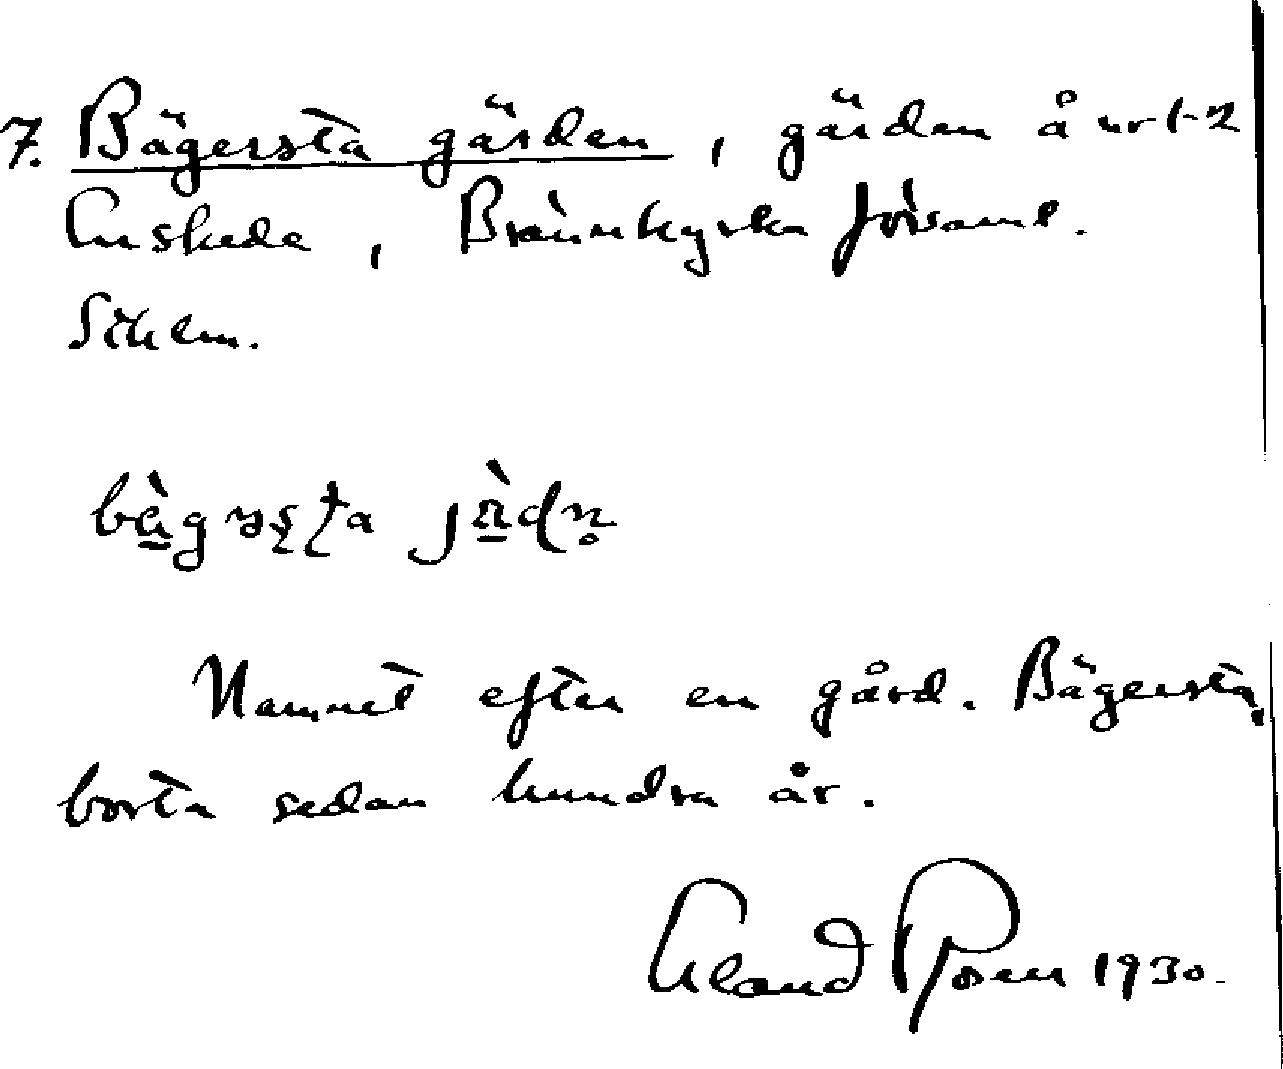 7. Bägersta gärden, gärden å nr 1-2
Enskede, Brännkyrka församl.
Sthlm.
Namnet efter en gård. Bägersta,
borta sedan hundra år.
Eland Rosen 1930.